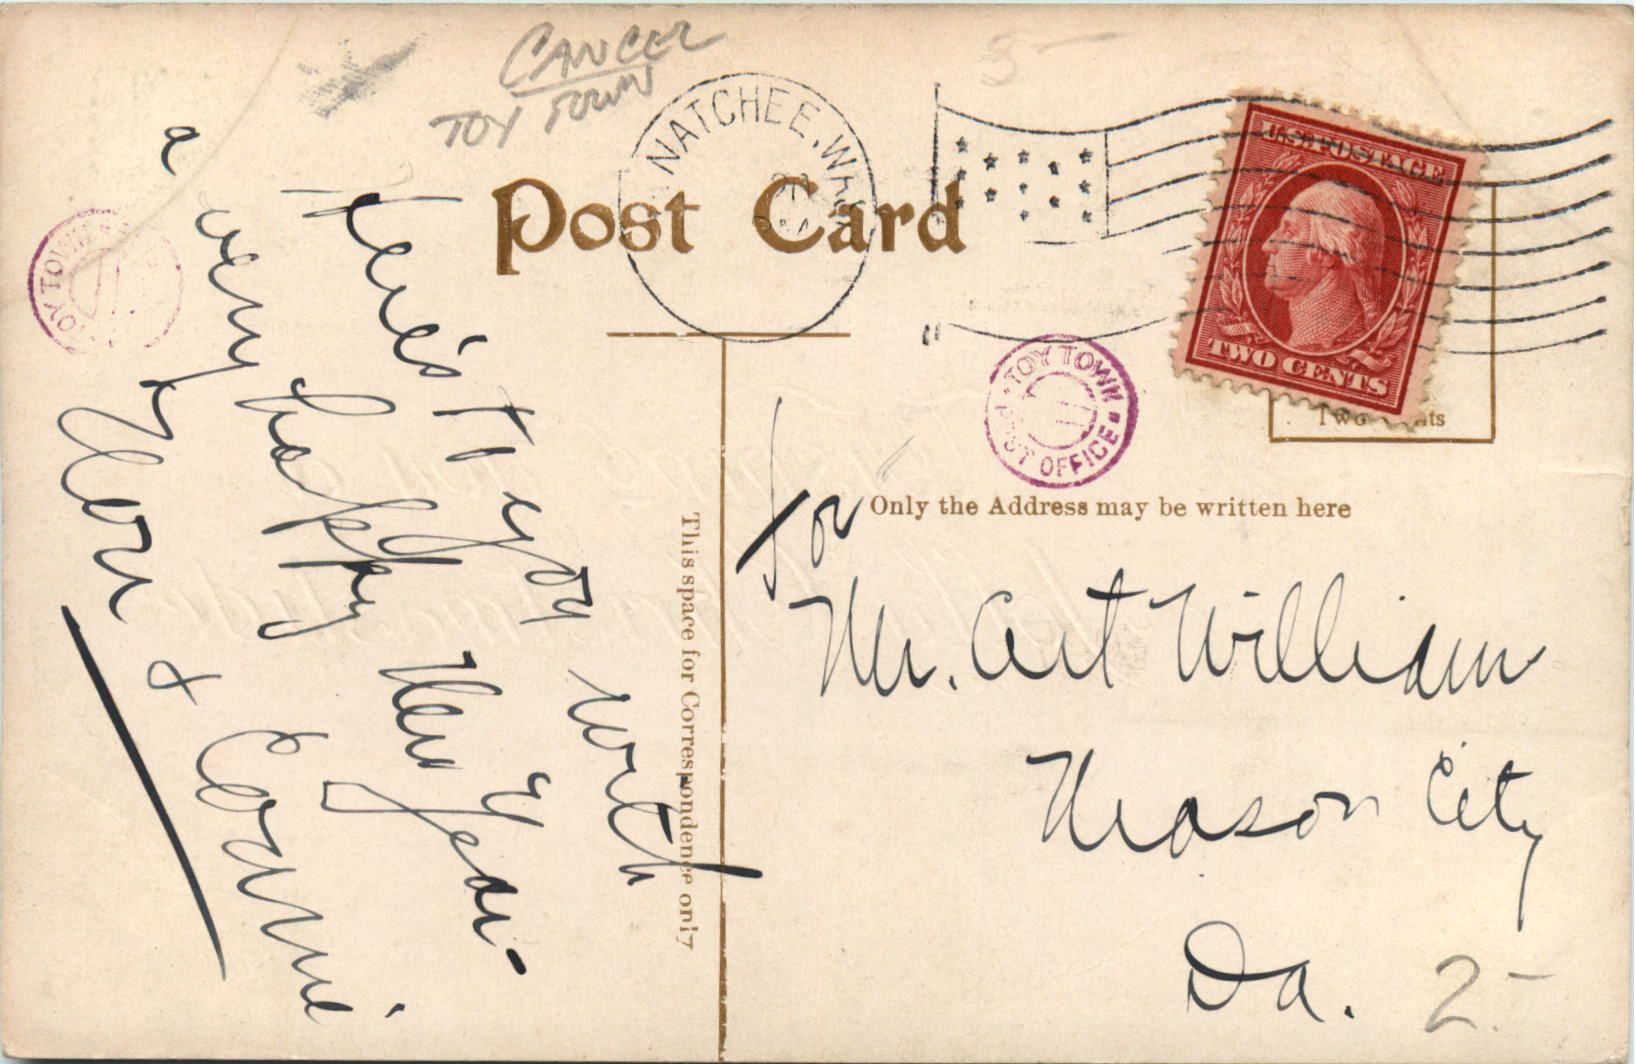 CANCEL
TOY TOWN
5 -
NATCHEE, WA
Post Card
U.S. POSTAGE
TWO CENTS
Two
TOY TOWN
POST OFFICE
TOY TOWN
This space for Correspondence only
Only the Address may be written here
Here's to you with
a very happy New Year.
&
for
Mr. Art William
Mason City
Ia.
2 -